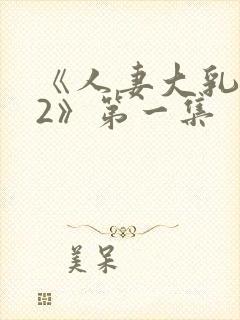 《人妻大乳
2》第一集
美呆